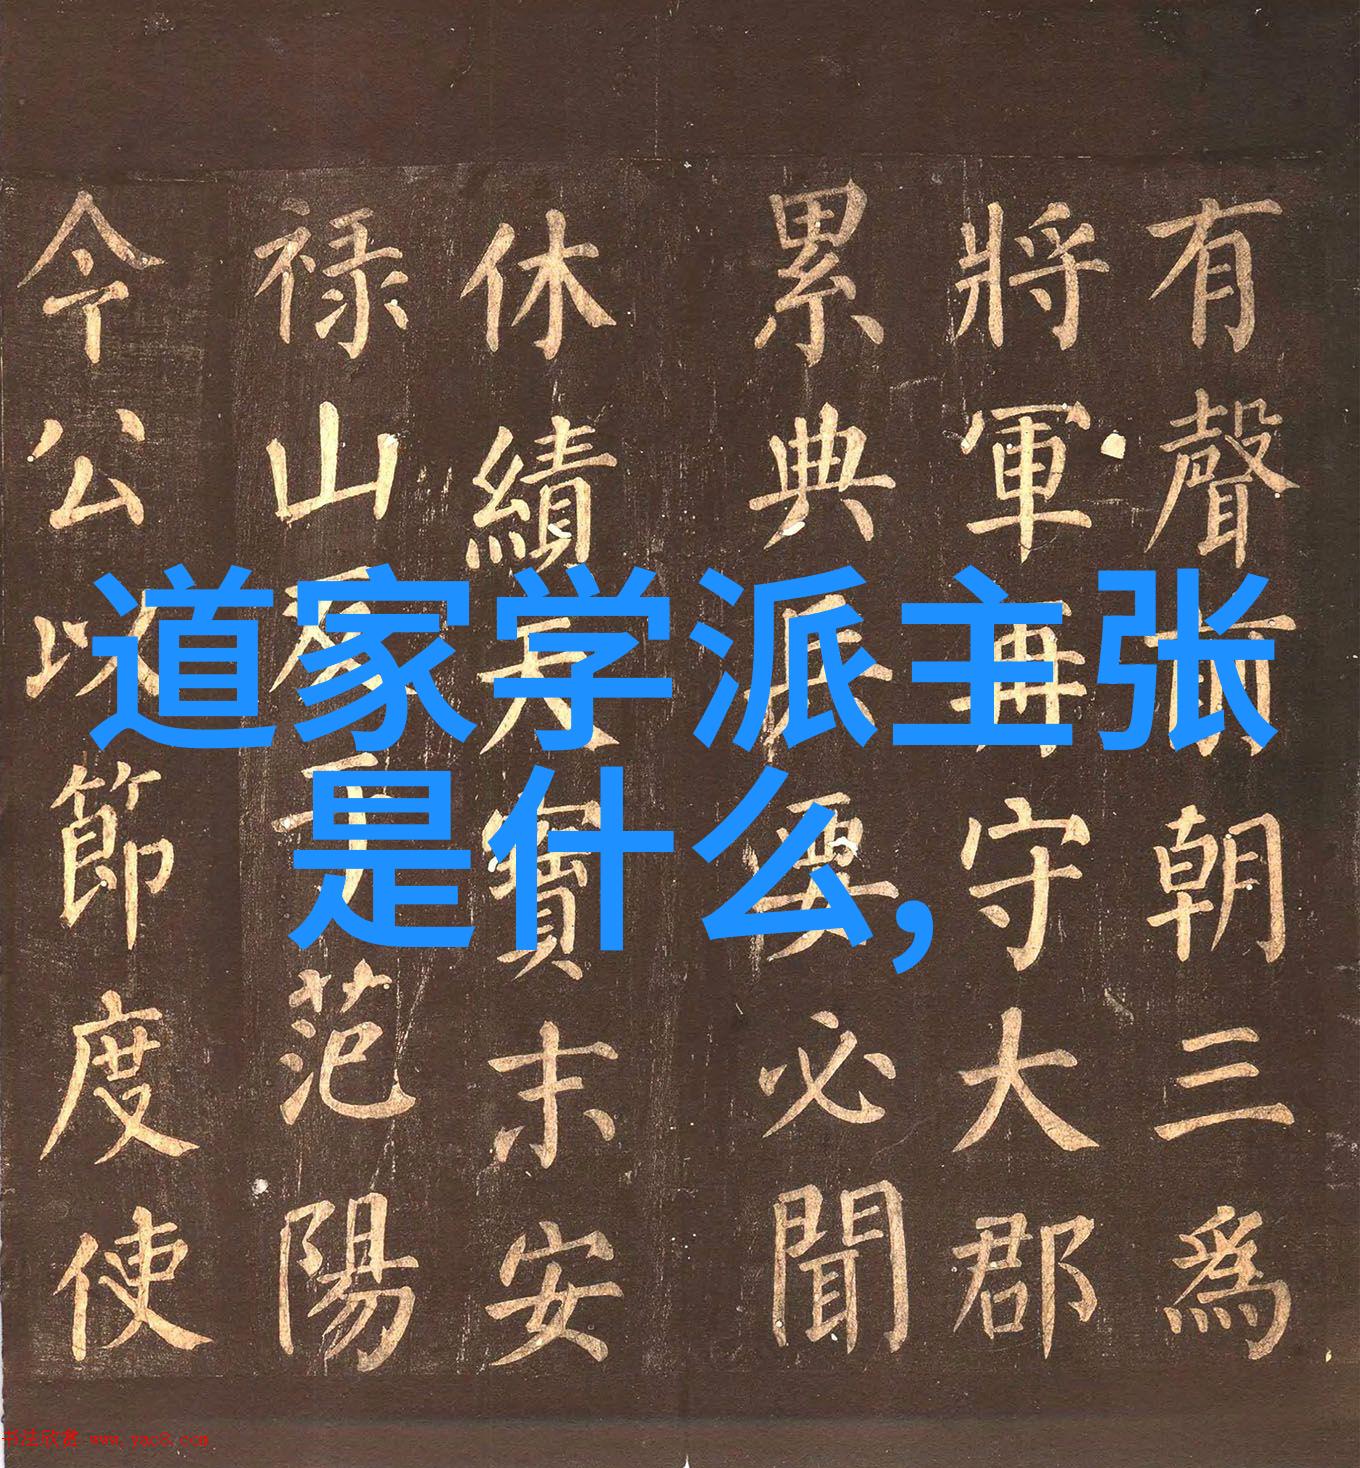 道家学派主张
是什么,
有聲前朝三為
將軍再守大郡
累典兵要必聞
休績天寶末安
禄山范陽
令公以節度使
书法欣赏 www.yac8.com